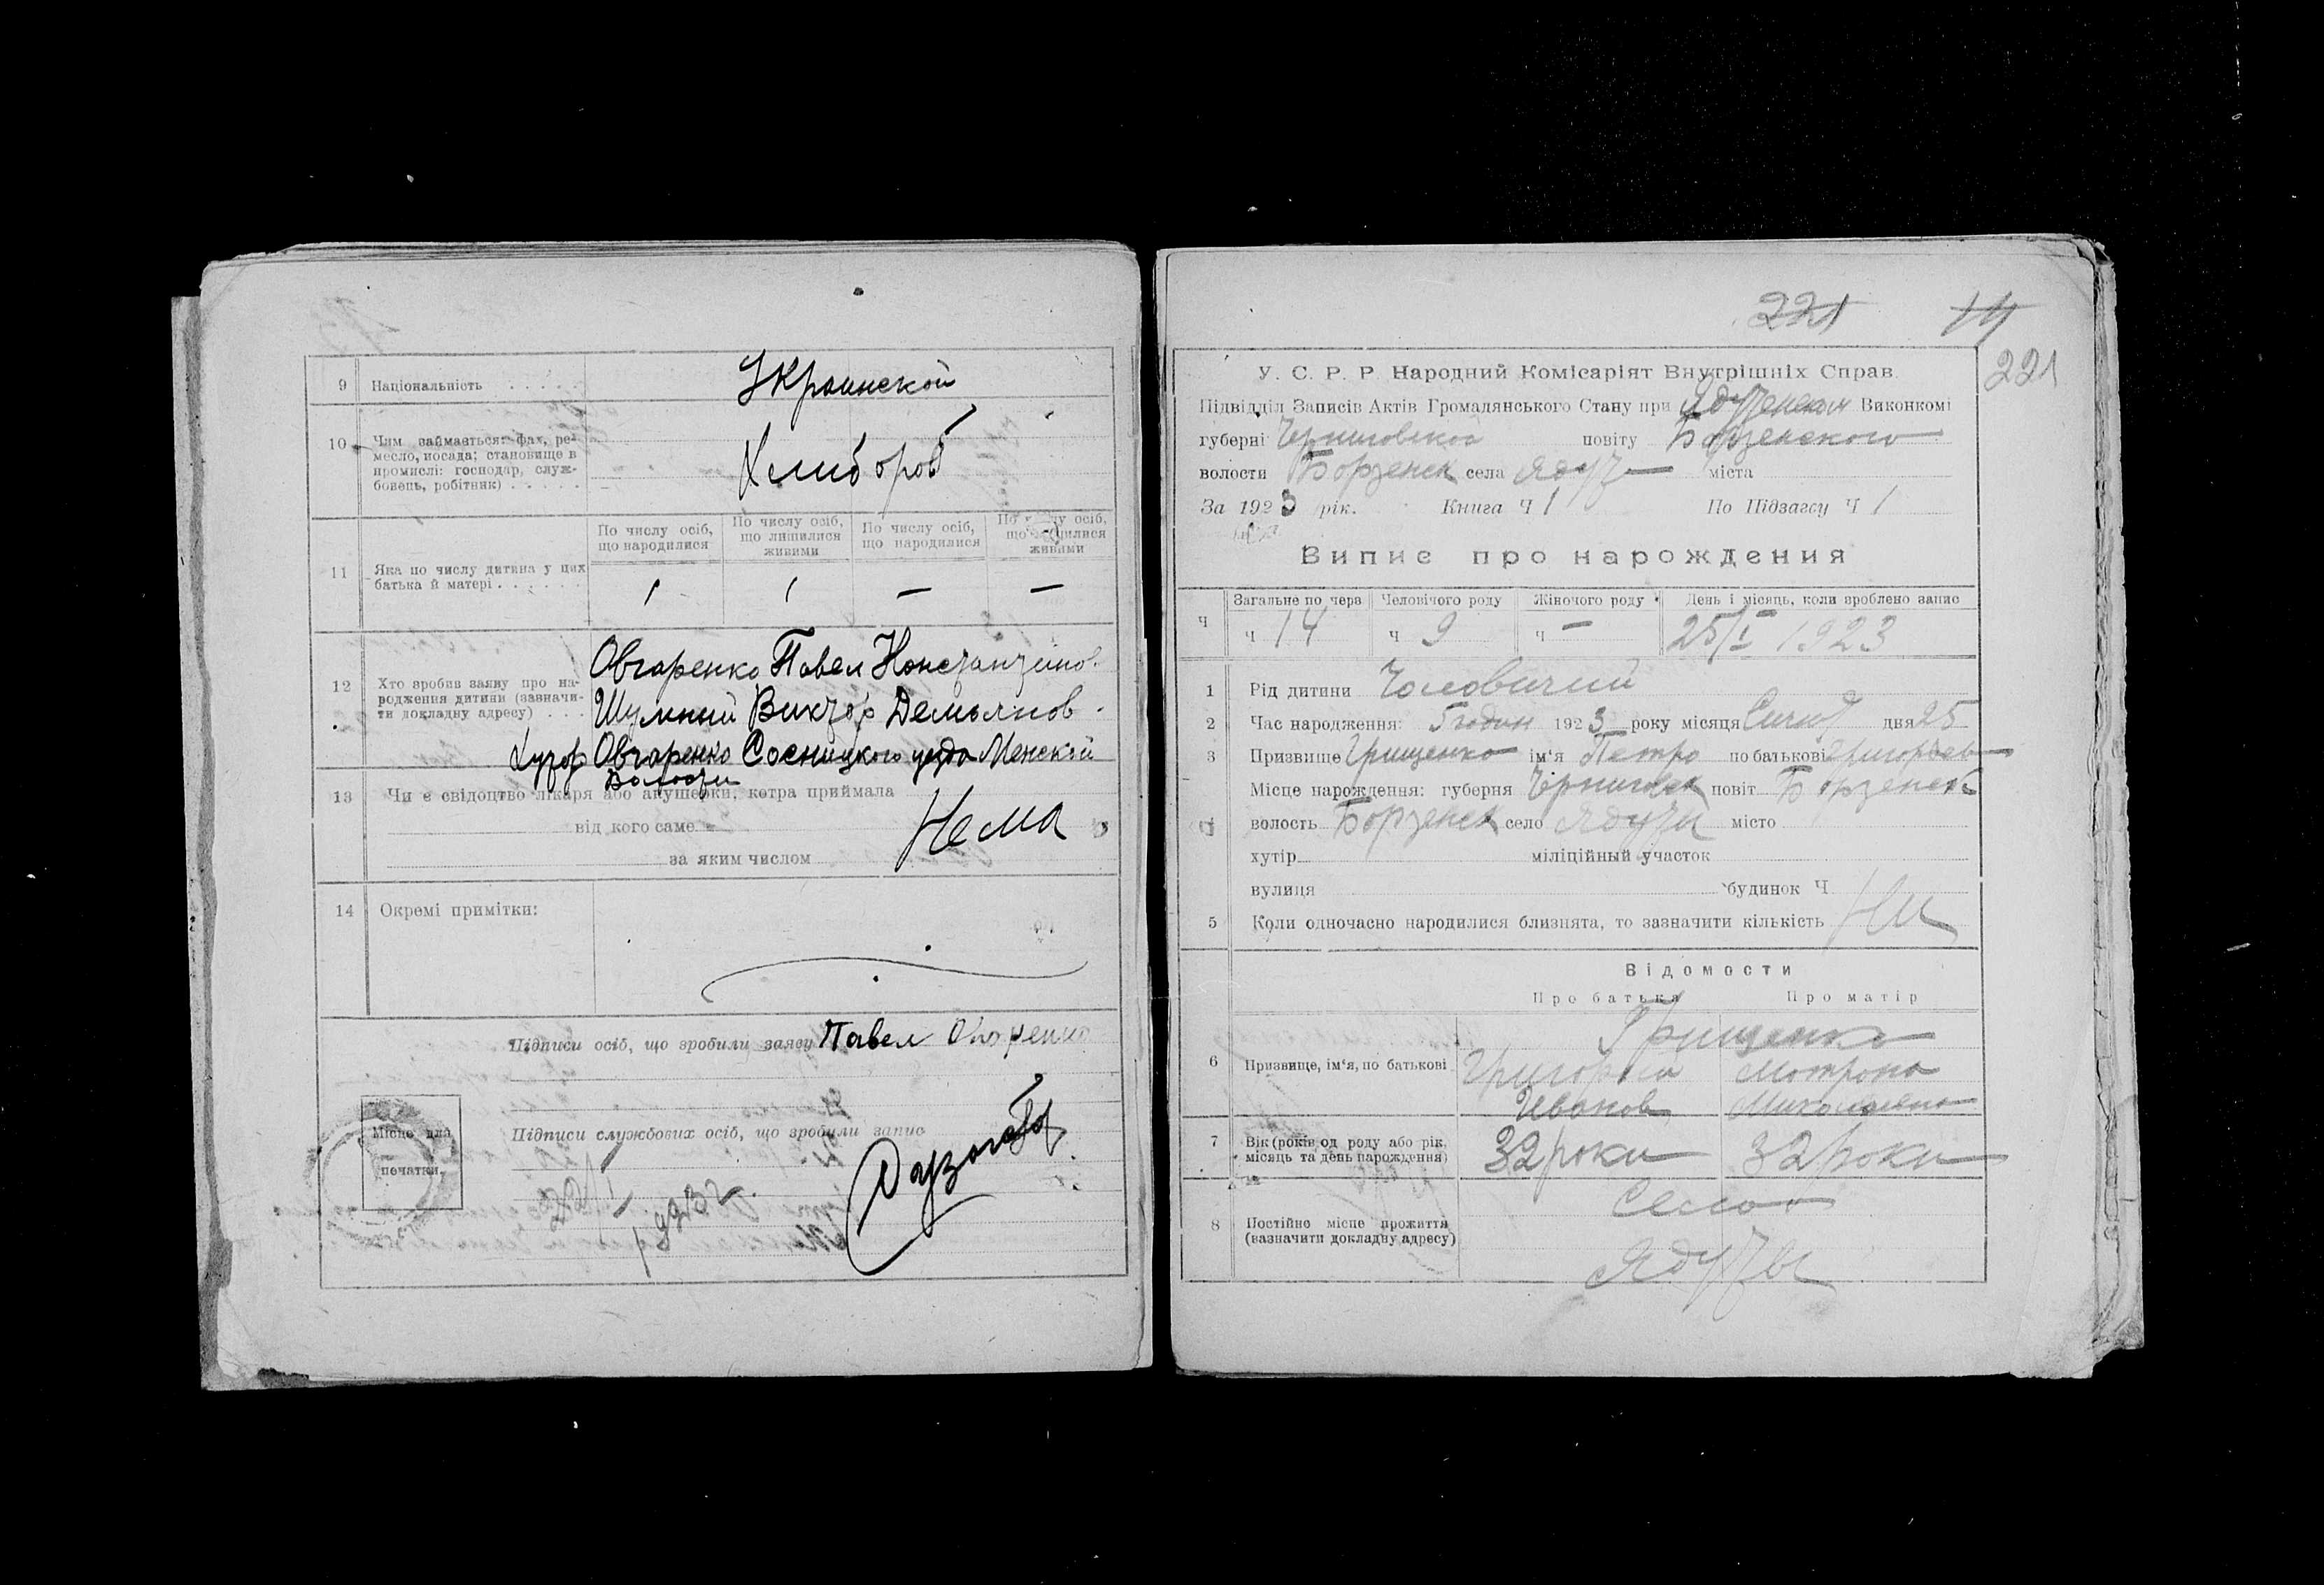 9 Національність . . . . . Украинской
10 Чим займається: фах, ре-
месло, посада; становище в
промислі: господар, служ-
бовець, робітник) . . . . . Хлиб ороб
По числу осіб, що народилися
По числу осіб, що лишилися живими
По числу осіб, що народилися
По числу осіб, що лишилися живими
11 Яка по числу дитина у цих
батька й матері . . . . . . 1 1 — —
12 Хто зробив заяву про на-
родження дитини (зазначи-
ти докладну адресу) . . .
Овчаренко Павел Константинов.
Шумный Виктор Демьянов.
Хутор Овчаренко Сосницкого уезда Менской
Волости
13 Чи є свідоцтво лікаря або акушерки, котра приймала
від кого саме
Нема
за яким числом
14 Окремі примітки:
Підписи осіб, що зробили заяву Павел Овчаренко
Підписи службових осіб, що зробили запис
Місце для
печатки.
1923 г.
221 14
221
У. С. Р. Р. Народний Комісаріят Внутрішніх Справ.
Підвідділ Записів Актів Громадянського Стану при Ядутенском Виконкомі
губерні Черниговской повіту Борзенского
волости Борзенск села Ядут міста
За 1923 рік. Книга Ч 1 По Підзагсу Ч 1
Випис про нарождения
Ч Загальне по черз Человічого роду Жіночого роду День і місяць, коли зроблено запис
ч 14 ч 9 ч — 25/I 1923
1 Рід дитини Чоловичий
2 Час народження: 5 годин 1923 року місяця дня 25
3 Призвище Грищенко ім'я Петро по батькові Григорьев
Місце нарождення: губерня Черниговск повіт Борзенск
4 волость Борзенск село Ядути місто
хутір міліційный участок
вулиця будинок Ч
5 Коли одночасно народилися близнята, то зазначити кількість Ни
Відомости
Про батька Про матір
Грищенко
6 Призвище, ім'я, по батькові Григорий Мотрона
Иванов Миколаевна
7 Вік (років од роду або рік,
місяць та день нарождення) 32 роки 32 роки
Село
8 Постійне місце прожиття
(вазначити докладну адресу)
Ядуты